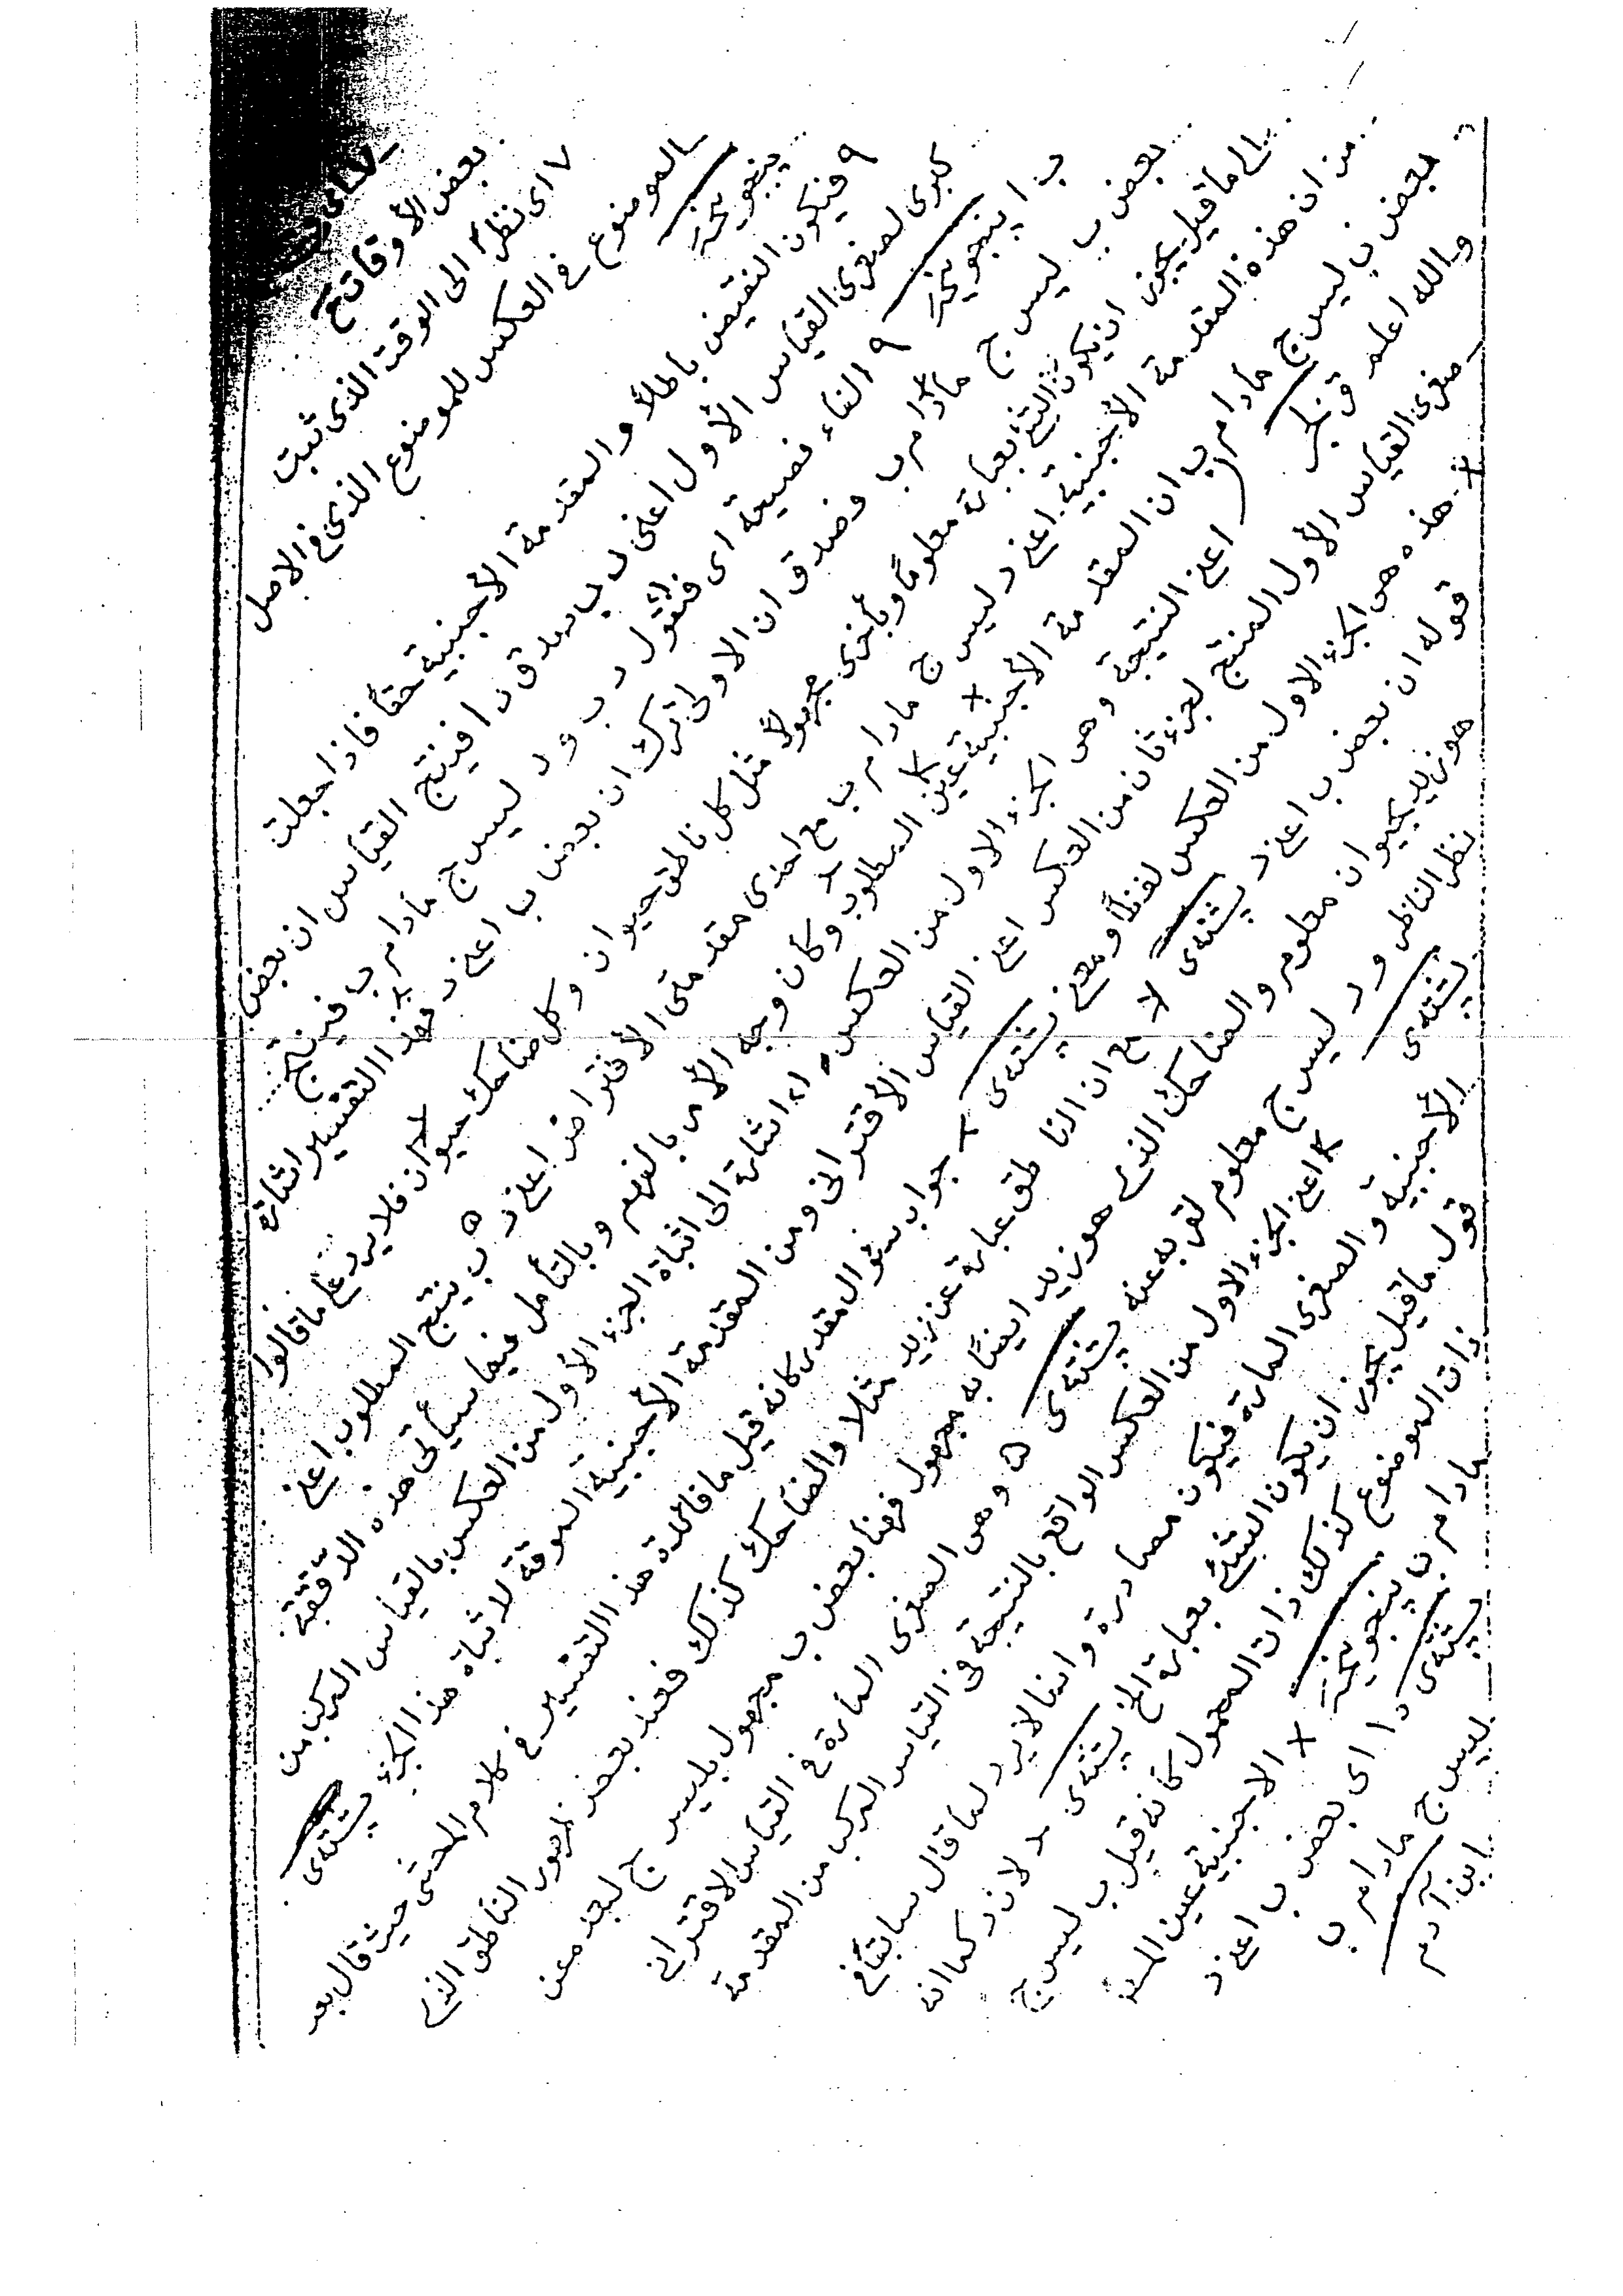 بعض الأوقات
٧ اى نظرًا الى الوقت الذى ثبت
الموضوع فى العكس للموضوع الذى فى الاصل
پینجوینى
٩ فيكون النقيض باطلاً والمقدمة الأجنبية حقًا فاذا جعلت
كبرى لصغرى القياس الأول اعنى د ب يصدق د ا فينتج القياس ان بعض
ب ا پینجوینى ٩ الفاء فصيحة اى فنقول د ب ود ليس ج مادام ب فينتج
بعض ب ليس ج مادام ب وصدق ان الاولى ترك ان بعض ب اعنى د فهذا التفسير اشارة
الى ما قيل يجوز ان يكون الشئ بعبارة معلومًا وباخرى مجهولاً مثل كل ناطق حيوان وكل ضاحك حيوان فلا يرد على ما قالوا
من ان هذه المقدمة الأجنبية اعنى د ليس ج مادام ب مع احدى مقدمتى الأفتراض اعنى د ب ينتج المطلوب اعنى
بعض ب ليس ج مادام ب ان المقدمة الأجنبية عين المطلوب وكان وجه الأمر بالفهم وبالتأمل فيما سيأتى هذه الدقيقة
والله اعلم قزلجى اعنى النتيجة وهى الجزء الاول من العكس اشارة الى اثباة الجزء الأول من العكس بالقياس المركب من
صغرى القياس الأول المنتج لجزء ثان من العكس اعنى القياس الأقترانى ومن المقدمة الأجنبية الموقة لاثباة هذا الجزء پشتەى
هذه هى الجزء الاول من العكس لفظًا ومعنى پشتەى ٢ جواب سؤال مقدر كانه قيل ما فائدة هذا التفسير فى كلام المحشى حيث قال بعد
قوله ان بعض ب اعنى د پشتەى لا مع ان الناطق عبارة عن زيد مثلا والضاحك كذلك فعند بعض تصور الناطق الذى
هو زيد بحيوان معلوم والضاحك الذى هو زيد ايضًا به مجهول فهنا بعض ب مجهول بليس ج لبعد معن
نظر الناظر ود ليس ج معلوم لقربه عنه پشتەى ٥ وهى الصغرى المارة فى القياس الاقترانى
پشتەى اعنى الجزء الاول من العكس الواقع بالنتيجة فى القياس المركب من المقدمة
الأجنبية والصغرى المارة فيكون مصادرة وانما لا يرد لما قال سابقًا فى
قول ما قيل يجوز ان يكون الشئ بعبارة الخ پشتەى لان د كما انه
ذات الموضوع كذلك ذات المحمول كانه قيل ب ليس ج
مادام ب پینجوینى الاجنبية عين
پشتەى د ا اى بعض ب اعنى د
ليس ج مادام ب
ابن آدم